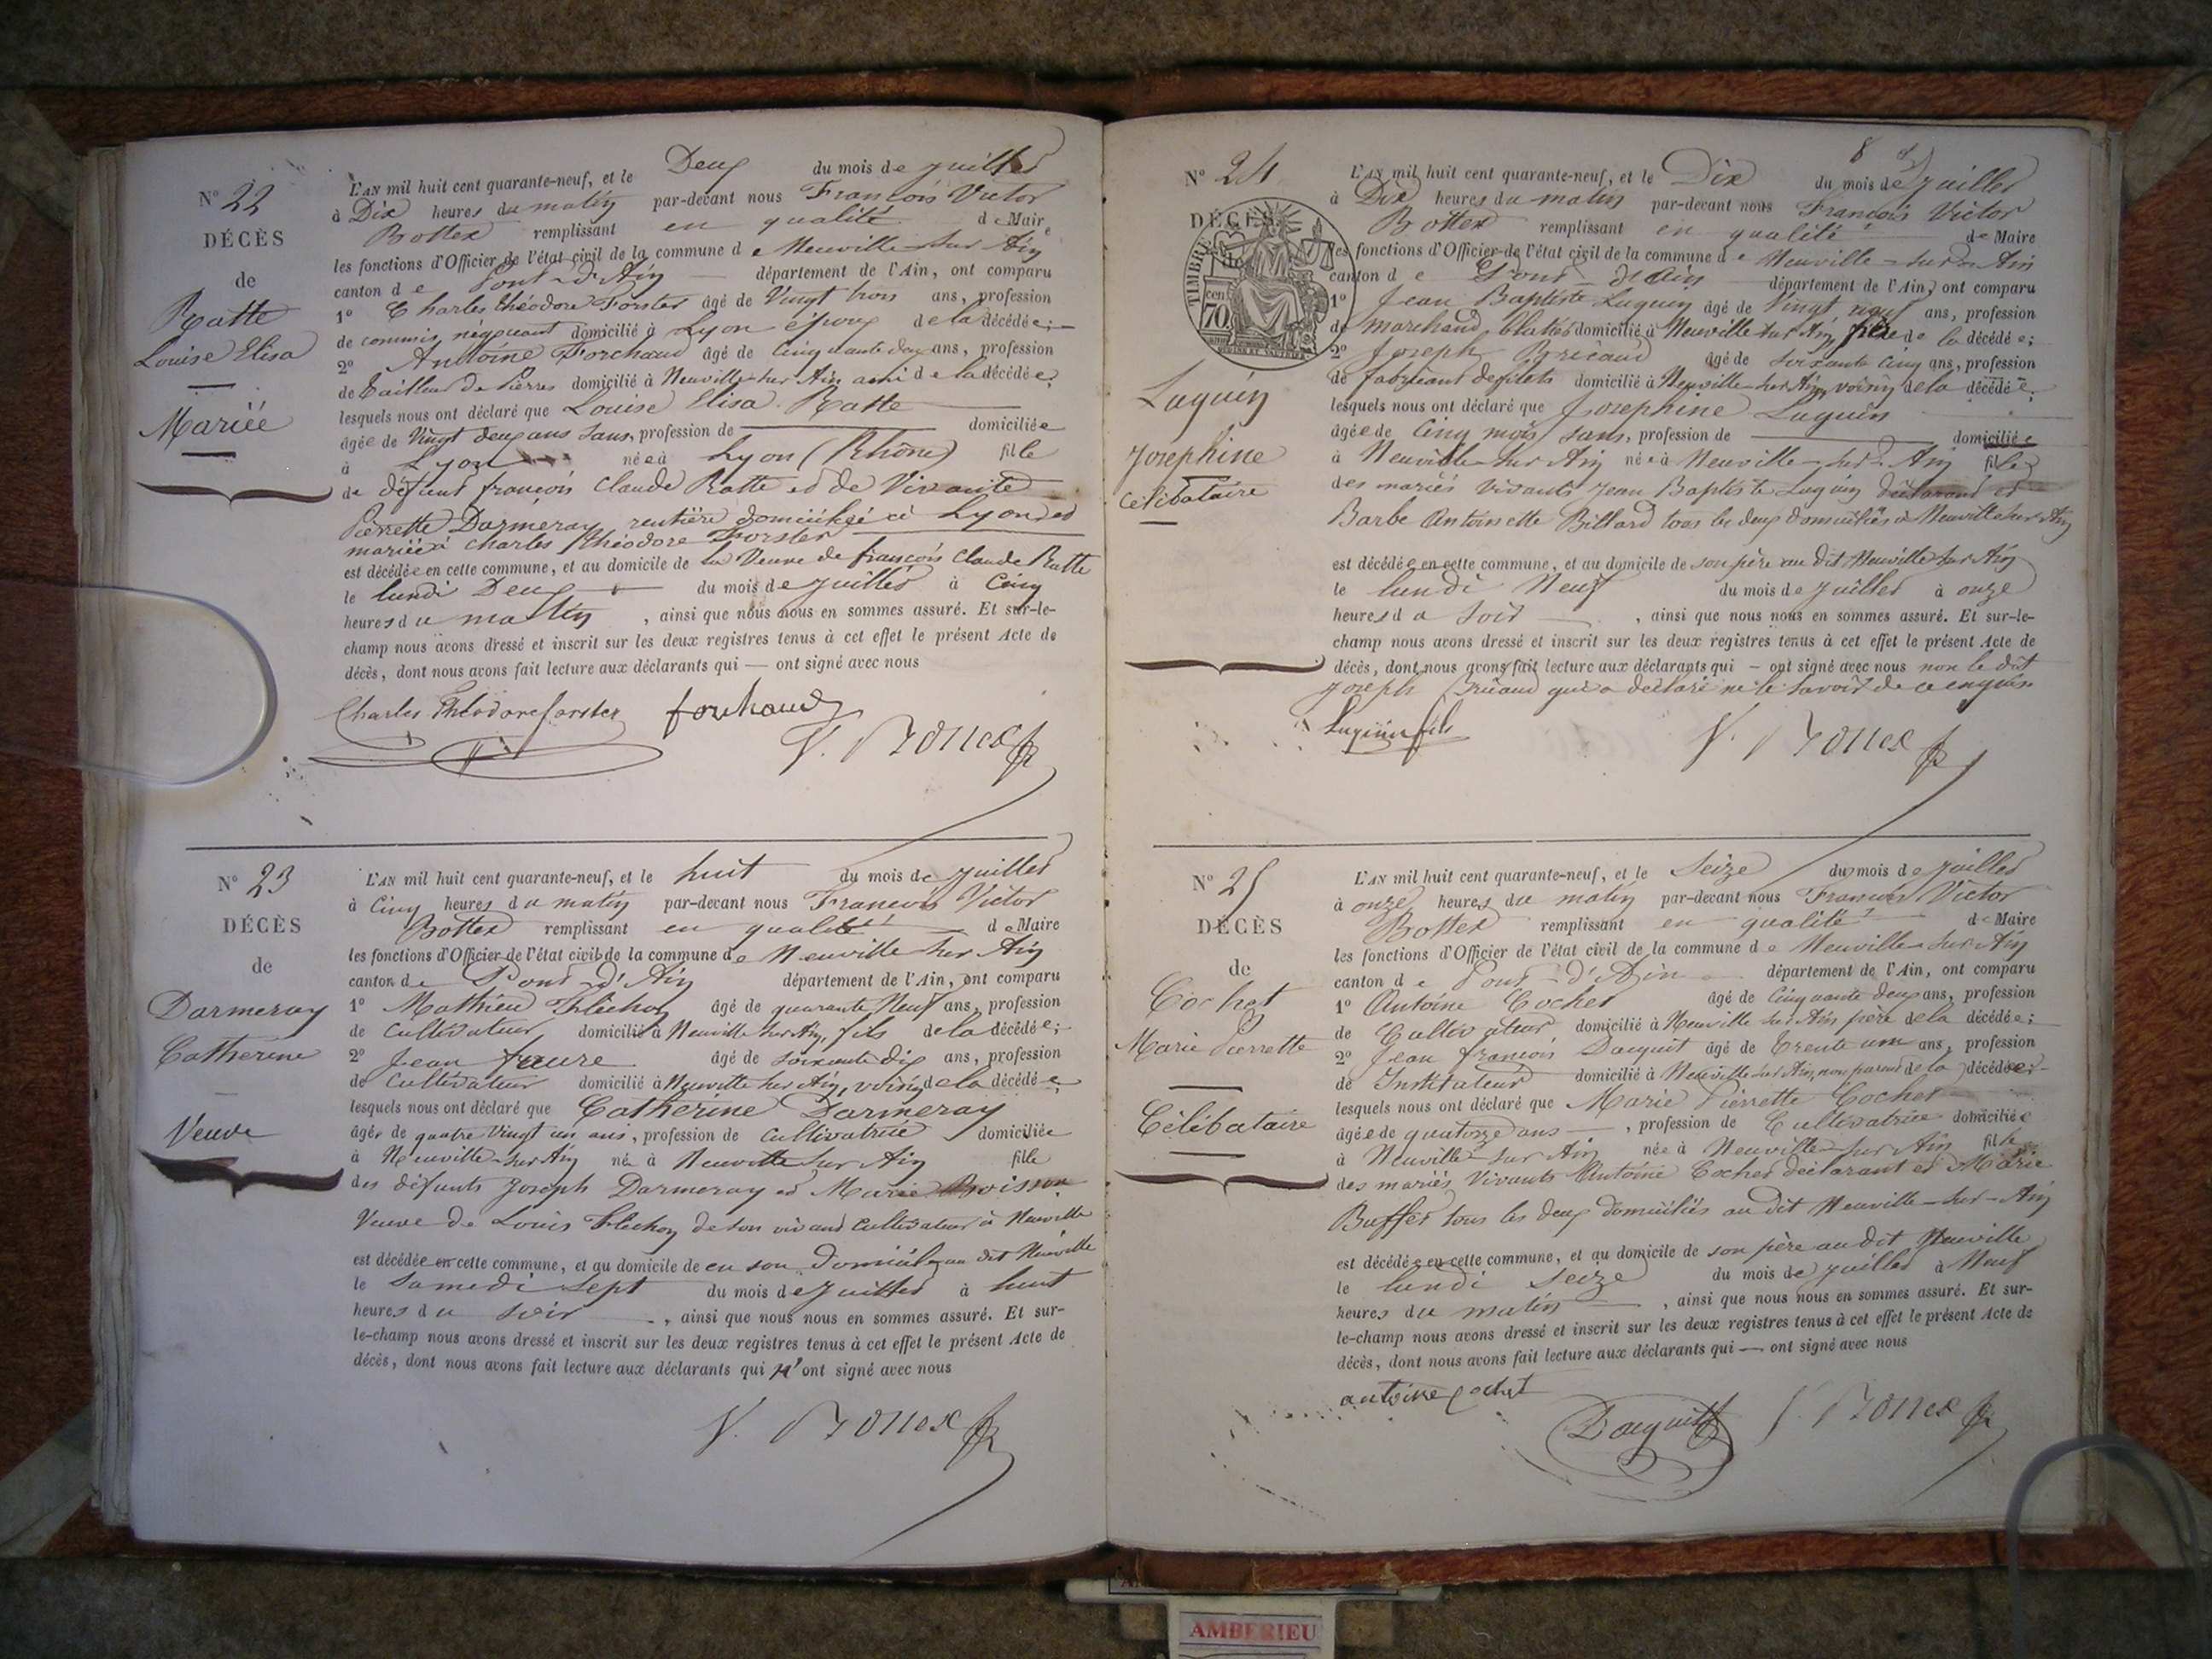 N° 22
DÉCÈS
de
Ratte
Louise Elisa
Mariée
L'AN mil huit cent quarante-neuf, et le Deux du mois de juillet
à Dix heures du matin par-devant nous François Victor
Bottex remplissant en qualité de Maire
les fonctions d'Officier de l'état civil de la commune de Neuville-sur-Ain
canton de Pont-d'Ain département de l'Ain, ont comparu
1° Charles théodore Forster âgé de Vingt trois ans, profession
de commis négociant domicilié à Lyon époux de la décédée;
2° Antoine Forchaud âgé de Cinquante deux ans, profession
de Tailleur de Pierres domicilié à Neuville-sur Ain ami de la décédée,
lesquels nous ont déclaré que Louise Elisa Ratte
âgée de Vingt deux ans sans, profession de domiciliée
à Lyon née à Lyon (Rhône) fille
de défunt françois Claude Ratte et de Vivante
Pierrette Darmeray rentière domiciliée à Lyon et
mariée à Charles théodore Forster
est décédée en cette commune, et au domicile de la Veuve de françois Claude Ratte
le lundi Deux du mois de juillet à Cinq
heures du matin, ainsi que nous nous en sommes assuré. Et sur-le-
champ nous avons dressé et inscrit sur les deux registres tenus à cet effet le présent Acte de
décès, dont nous avons fait lecture aux déclarants qui — ont signé avec nous
Charles Théodore forster
V. Bottex
N° 23
DÉCÈS
de
Darmeray
Catherine
Veuve
L'AN mil huit cent quarante-neuf, et le huit du mois de juillet
à Cinq heures du matin par-devant nous François Victor
Bottex remplissant en qualité de Maire
les fonctions d'Officier de l'état civil de la commune de Neuville sur Ain
canton de Pont-d'Ain département de l'Ain, ont comparu
1° Mathieu Fléchon âgé de quarante Neuf ans, profession
de Cultivateur domicilié à Neuville sur Ain, fils de la décédée;
2° Jean faure âgé de soixante dix ans, profession
de cultivateur domicilié à Neuville sur Ain, voisin de la décédée,
lesquels nous ont déclaré que Catherine Darmeray
âgée de quatre Vingt un ans, profession de Cultivatrice domiciliée
à Neuville-sur Ain née à Neuville sur Ain fille
des défunts Joseph Darmeray et Marie Boisson
Veuve de Louis Fléchon de son vivant Cultivateur à Neuville
est décédée en cette commune, et au domicile de en son Domicile au dit Neuville
le Samedi Sept du mois de juillet à huit
heures du soir, ainsi que nous nous en sommes assuré. Et sur-
le-champ nous avons dressé et inscrit sur les deux registres tenus à cet effet le présent Acte de
décès, dont nous avons fait lecture aux déclarants qui N'ont signé avec nous
V. Bottex
8
N° 24
DÉCÈS
de
TIMBRE
70 cen
Luguin
Josephine
Célibataire
L'AN mil huit cent quarante-neuf, et le Dix du mois de juillet
à Dix heures du matin par-devant nous François Victor
Bottex remplissant en qualité de Maire
les fonctions d'Officier de l'état civil de la commune de Neuville-sur-Ain
canton de Pont-d'Ain département de l'Ain, ont comparu
1° Jean Baptiste Luguin âgé de Vingt neuf ans, profession
de marchand blatier domicilié à Neuville sur Ain, père de la décédée;
2° Joseph Bricaud âgé de soixante Cinq ans, profession
de fabricant de filets domicilié à Neuville-sur Ain, voisin de la décédée,
lesquels nous ont déclaré que Josephine Luguin
âgée de Cinq mois sans, profession de domiciliée
à Neuville-sur Ain née à Neuville-sur-Ain fille
des mariés vivants Jean Baptiste Luguin déclarant et
Barbe Antoinette Billard tous les deux domiciliés à Neuville sur Ain
est décédée en cette commune, et au domicile de son père au dit Neuville sur Ain
le lundi Neuf du mois de juillet à onze
heures du soir, ainsi que nous nous en sommes assuré. Et sur-le-
champ nous avons dressé et inscrit sur les deux registres tenus à cet effet le présent Acte de
décès, dont nous avons fait lecture aux déclarants qui — ont signé avec nous non le dit
Joseph Bricaud qui a déclaré ne le savoir de ce enquis
Luguin fils
V. Bottex
N° 25
DÉCÈS
de
Cochet
Marie Pierrette
Célibataire
L'AN mil huit cent quarante-neuf, et le Seize du mois de juillet
à onze heures du matin par-devant nous François Victor
Bottex remplissant en qualité de Maire
les fonctions d'Officier de l'état civil de la commune de Neuville-sur-Ain
canton de Pont-d'Ain département de l'Ain, ont comparu
1° Antoine Cochet âgé de Cinquante deux ans, profession
de Cultivateur domicilié à Neuville sur Ain père de la décédée;
2° Jean françois Dacquit âgé de Trente un ans, profession
de Instituteur domicilié à Neuville sur Ain, non parent de la décédée;
lesquels nous ont déclaré que Marie Pierrette Cochet
âgée de quatorze ans, profession de Cultivatrice domiciliée
à Neuville-sur Ain née à Neuville-sur Ain fille
des mariés Vivants Antoine Cochet déclarant et Marie
Buffet tous les deux domiciliés au dit Neuville-sur-Ain
est décédée en cette commune, et au domicile de son père au dit Neuville
le lundi seize du mois de juillet à Neuf
heures du matin, ainsi que nous nous en sommes assuré. Et sur-
le-champ nous avons dressé et inscrit sur les deux registres tenus à cet effet le présent Acte de
décès, dont nous avons fait lecture aux déclarants qui — ont signé avec nous
antoine cochet
Dacquit
V. Bottex
AMBERIEU